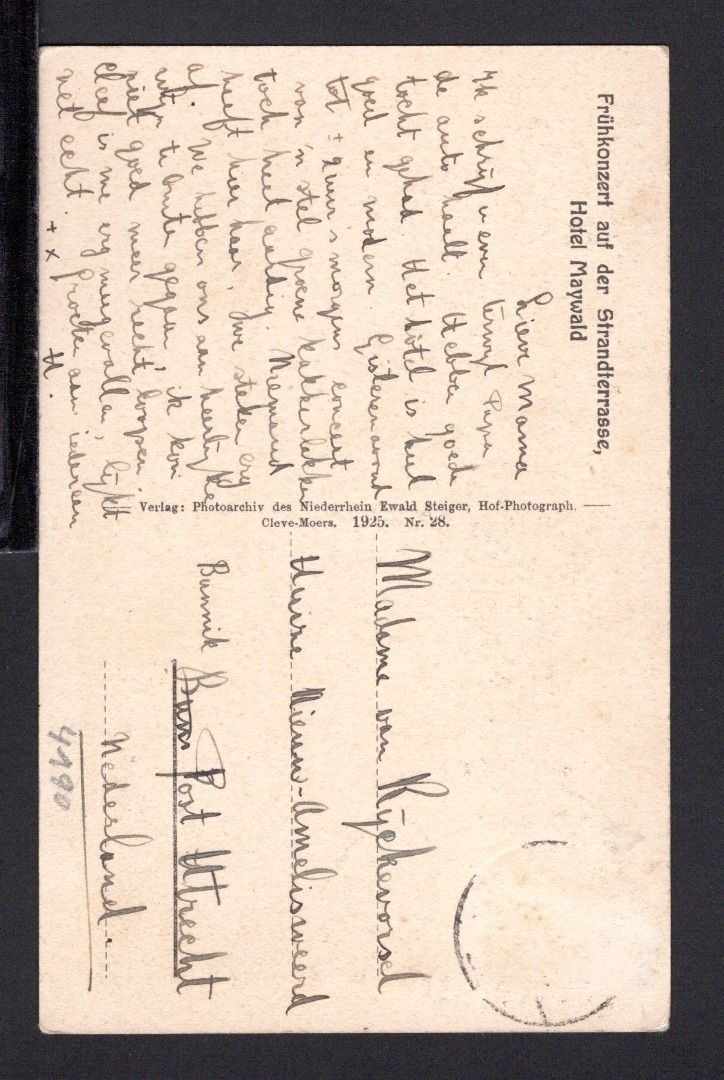 Frühkonzert auf der Strandterrasse,
Hotel Maywald
Lieve Mama
Ik schrijf u even terwijl Papa
de auto haalt. Hebbe goede
tocht gehad. Het hôtel is heel
goed en modern. Gisterenavond
tot ± 2 uur 's morgens concert
van 'n stel groene kakkerlakken
toch heel aardig. Niemand
heeft hier haar, we steken erg
af. We hebben ons aan heerlijke
wijn te buite gegaan, ik kon
niet goed meer recht loopen.
Cleef is me erg meegevallen, lijkt
net echt. Groeten aan iedereen
+ x H.
Verlag: Photoarchiv des Niederrhein Ewald Steiger, Hof-Photograph,
Cleve-Moers. 1925. Nr. 28.
Madame van Rijckevorsel
Huize Nieuw-Amelisweerd
Bunnik Post Utrecht
Nederland.
4990